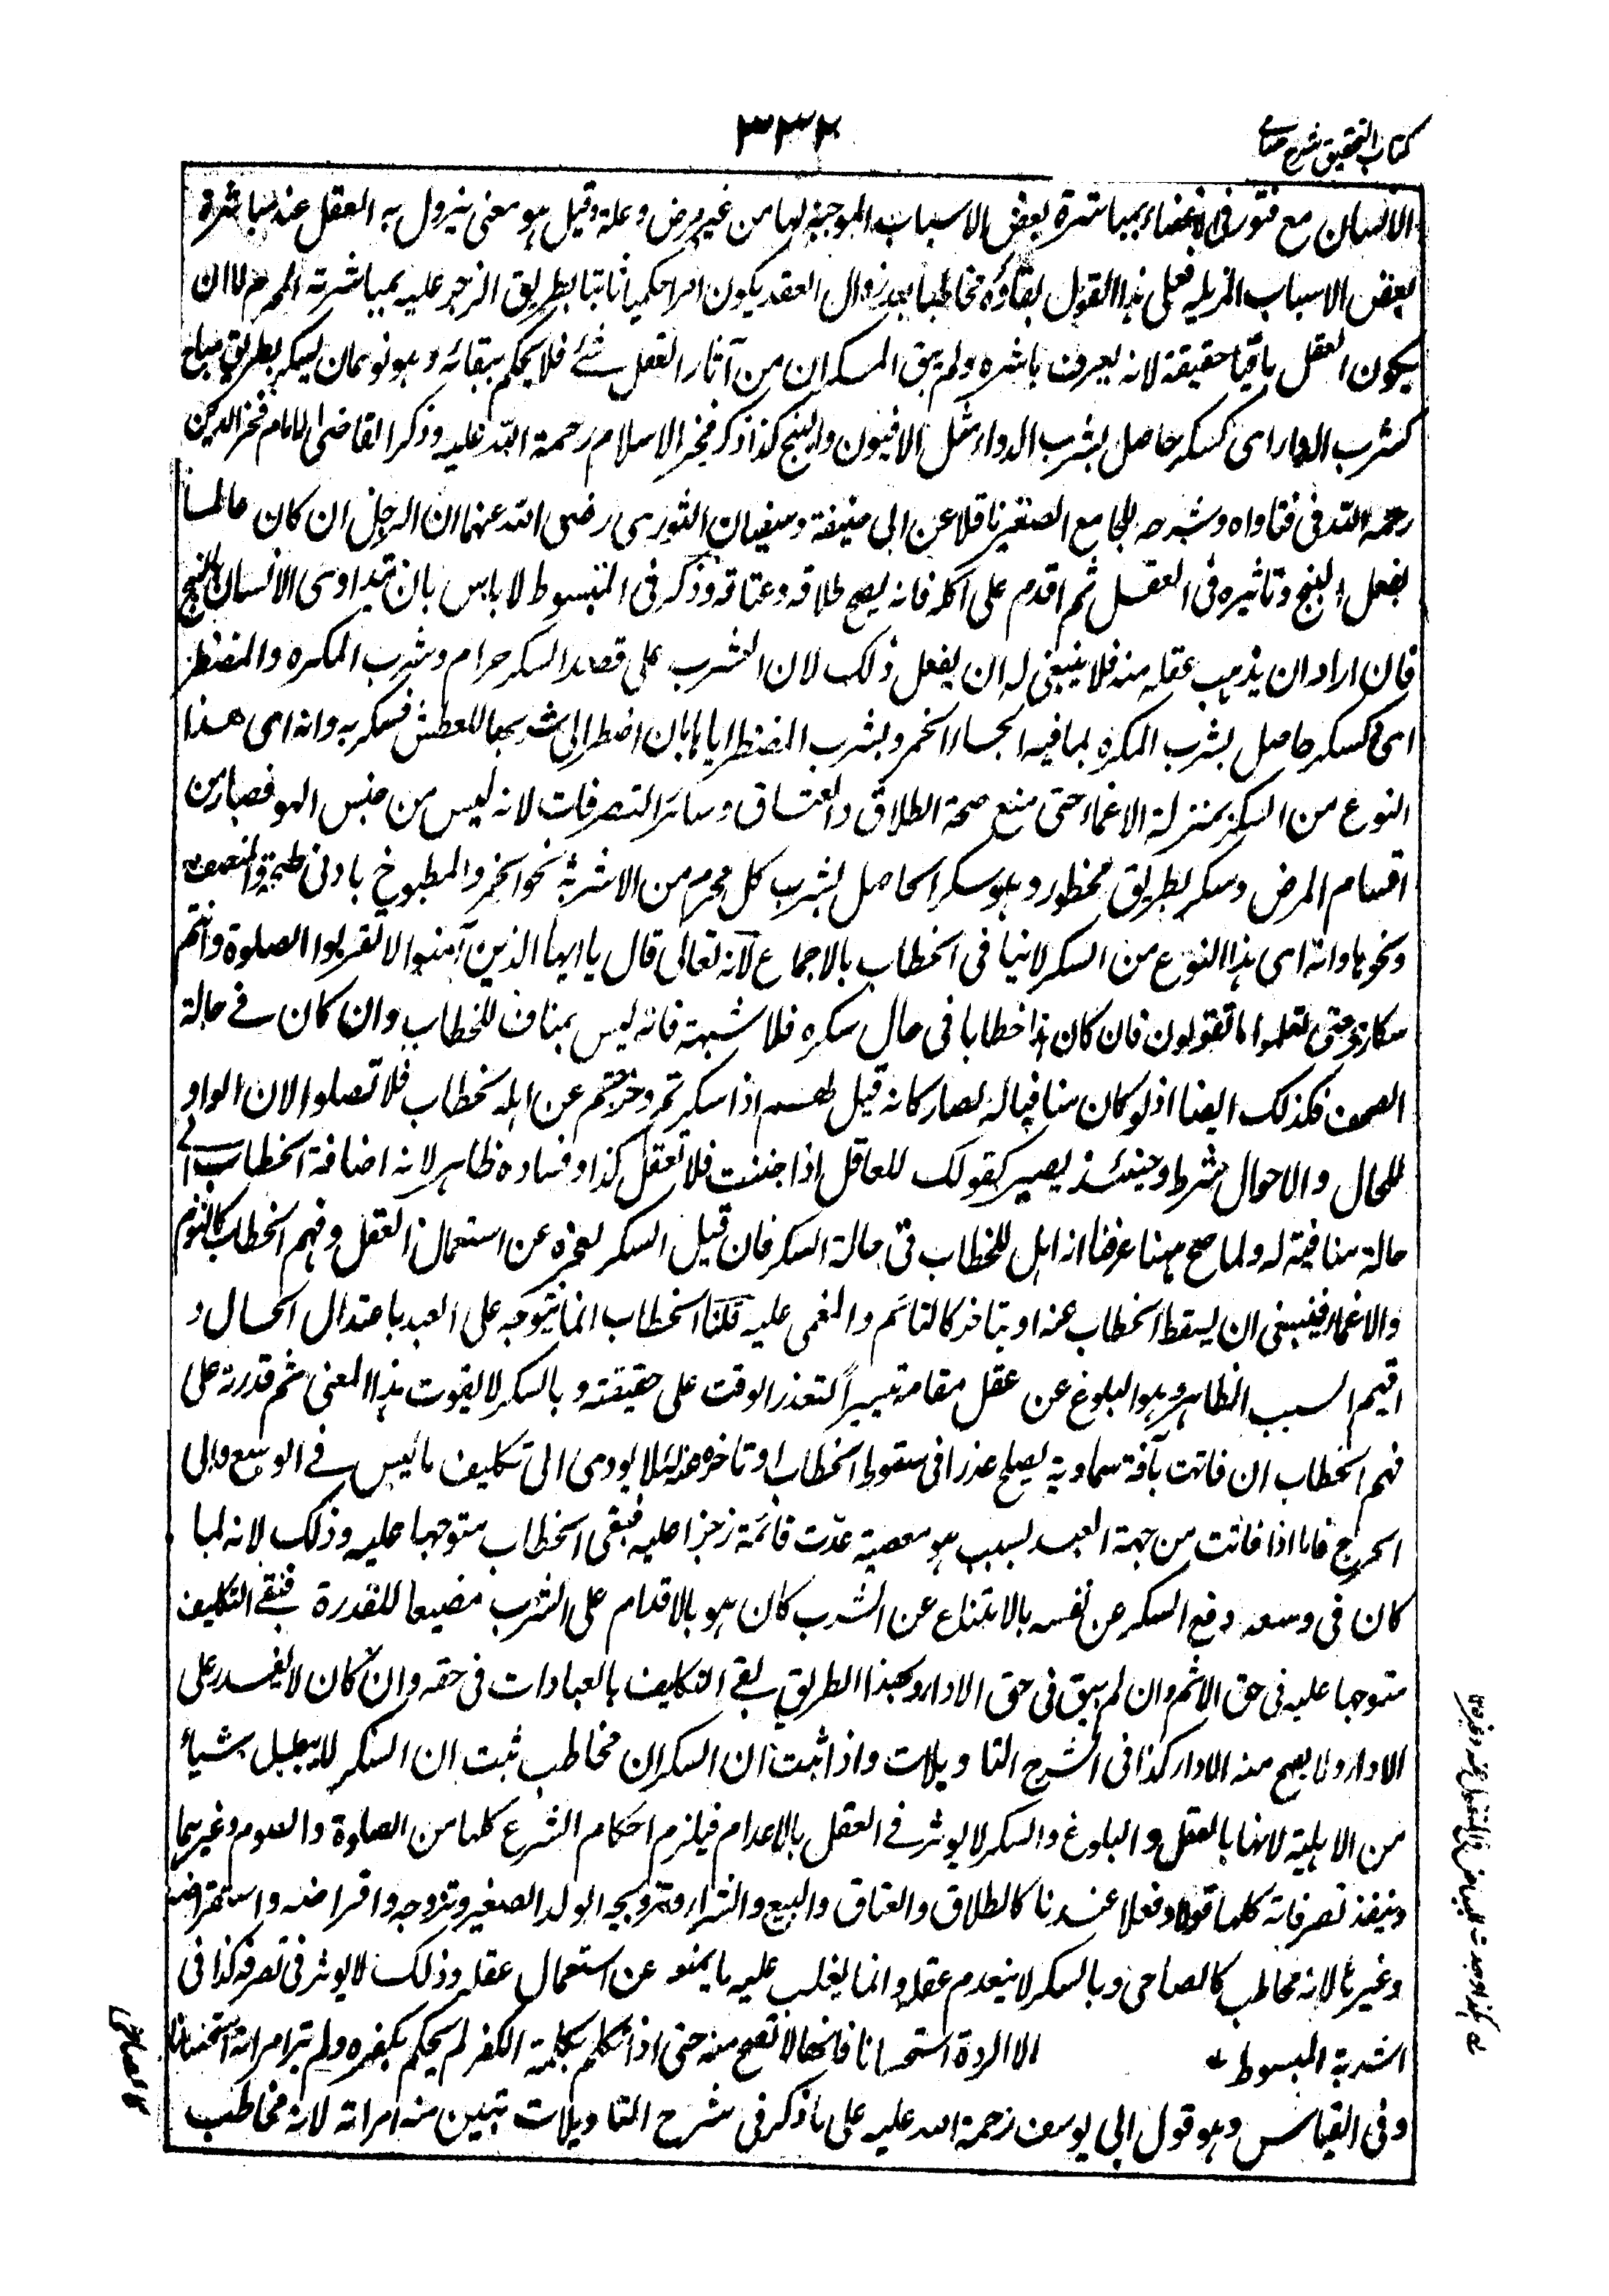 كتاب التحقيق شرح حسامى
٣٣٢
الانسان مع فتور فى الاعضاء بمباشرة بعض الاسباب الموجبة لها من غير مرض وعلة وقيل هو معنى يزول به العقل عند مباشرة
بعض الاسباب المزيلة فعلى هذا القول بقاؤه مخاطبا بعد زوال العقد يكون امرا حكميا ثابتا بطريق الزجر عليه بمباشرته المحرم لا ان
يكون العقل باقيا حقيقة لانه يعرف باثره ولم يبق المسكران من آثار العقل شئ فلا يحكم ببقائه وهو نوعان سكر بطريق مباح
كشرب الدواء اى كسكر حاصل بشرب الدواء مثل الافيون والبنج كذا ذكر فخر الاسلام رحمة الله عليه وذكر القاضى الامام فخر الدين
رحمه الله فى فتاواه وشرحه للجامع الصغير ناقلا عن ابى حنيفة وسفيان الثورى رضى الله عنهما ان الرجل ان كان عالما
بفعل البنج وتاثيره فى العقل ثم اقدم على اكله فانه يصح طلاقه وعتاقه وذكر فى المبسوط لا باس بان يتداوى الانسان بالبنج
فان اراد ان يذهب عقله منه فلا ينبغى له ان يفعل ذلك لان الشرب على قصد السكر حرام وشرب المكره والمضطر
اى كسكر حاصل بشرب المكره بما فيه الجاء الخمر وبشرب المضطر اياها بان اضطر الى شربها للعطش فسكر به وانه اى هذا
النوع من السكر بمنزلة الاغماء حتى منع صحة الطلاق والعتاق وسائر التصرفات لانه ليس من جنس اللهو فصار من
اقسام المرض وسكر بطريق محظور وهو سكر الحاصل بشرب كل محرم من الاشربة نحو الخمر والمطبوخ بادنى طبخة والمنصف
ونحوها وانه اى هذا النوع من السكر لا ينافى الخطاب بالاجماع لانه تعالى قال يا ايها الذين آمنوا لا تقربوا الصلوة وانتم
سكارى حتى تعلموا ما تقولون فان كان هذا خطابا فى حال سكره فلا شبهة فانه ليس بمناف للخطاب وان كان فى حالة
الصحو فكذلك ايضا اذ لو كان منافيا له لصار كانه قيل لهم اذا سكرتم وخرجتم عن اهلية الخطاب فلا تصلوا الان الواو
للحال والاحوال شرط وحينئذ يصير كقولك للعاقل اذا جننت فلا تعقل كذا وفساده ظاهر لانه اضافة الخطاب الى
حالة منافية له ولما صح ههنا عرفنا انه اهل للخطاب فى حالة السكر فان قيل السكر يعجزه عن استعمال العقل وفهم الخطاب كالنوم
والاغماء فينبغى ان يسقط الخطاب عنه او يتاخر كالنائم والمغمى عليه قلنا الخطاب انما يتوجه على العبد باعتدال الحال و
اقيم السبب الظاهر وهو البلوغ عن عقل مقامه تيسيرا لتعذر الوقف على حقيقته وبالسكر لا يفوت هذا المعنى ثم قدرته على
فهم الخطاب ان فاتت بآفة سماوية يصلح عذرا فى سقوط الخطاب او تاخره عنه لئلا يودى الى تكليف ما ليس فى الوسع والى
الحرج فاما اذا فاتت من جهة العبد بسبب هو معصية عدت قائمة زجرا عليه فبقى الخطاب متوجها عليه وذلك لانه لما
كان فى وسعه دفع السكر عن نفسه بالامتناع عن الشرب كان هو بالاقدام على الشرب مضيعا للقدرة فبقى التكليف
متوجها عليه فى حق الاثم وان لم يبق فى حق الاداء وبهذا الطريق بقى التكليف بالعبادات فى حقه وان كان لا يقدر على
الاداء ولا يصح منه الاداء كذا فى شرح التاويلات واذا ثبت ان السكران مخاطب ثبت ان السكر لا يبطل شيئا
من الاهلية لانها بالعقل والبلوغ والسكر لا يوثر فى العقل بالاعدام فيلزم احكام الشرع كلها من الصلوة والصوم وغيرهما
وينفذ تصرفاته كلها قولا وفعلا عندنا كالطلاق والعتاق والبيع والشراء وتزويجه الولد الصغير وتزوجه واقراضه واستقراضه
وغيرها لانه مخاطب كالصاحى وبالسكر لا ينعدم عقله وانما يغلب عليه ما يمنعه عن استعمال عقله وذلك لا يوثر فى تصرفه كذا فى
اشربة المبسوط الا الردة استحسانا فانها لا تصح منه حتى اذا تكلم بكلمة الكفر لم يحكم بكفره ولم تبن امراته استحسانا
وفى القياس وهو قول ابى يوسف رحمة الله عليه على ما ذكر فى شرح التاويلات تبين منه امراته لانه مخاطب
كالصاحى